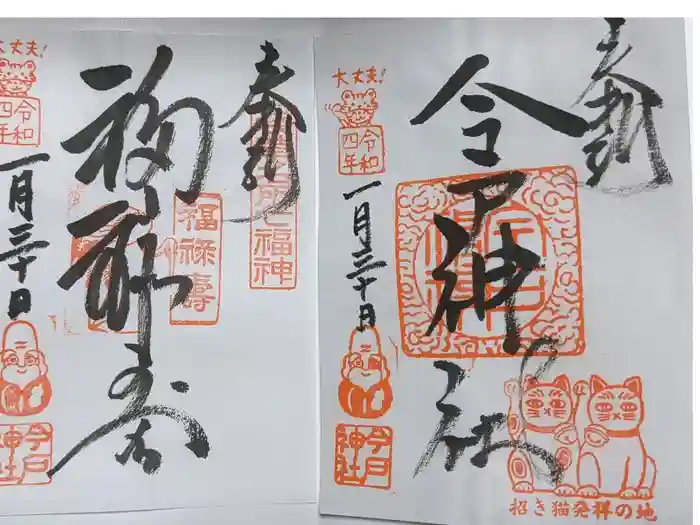 奉拝
福禄寿
福禄壽
七福神
大丈夫!
令和
四年
一月三十日
今戸
神社
奉拝
今戸神社
大丈夫!
令和
四年
一月三十日
今戸
神社
招き猫発祥の地